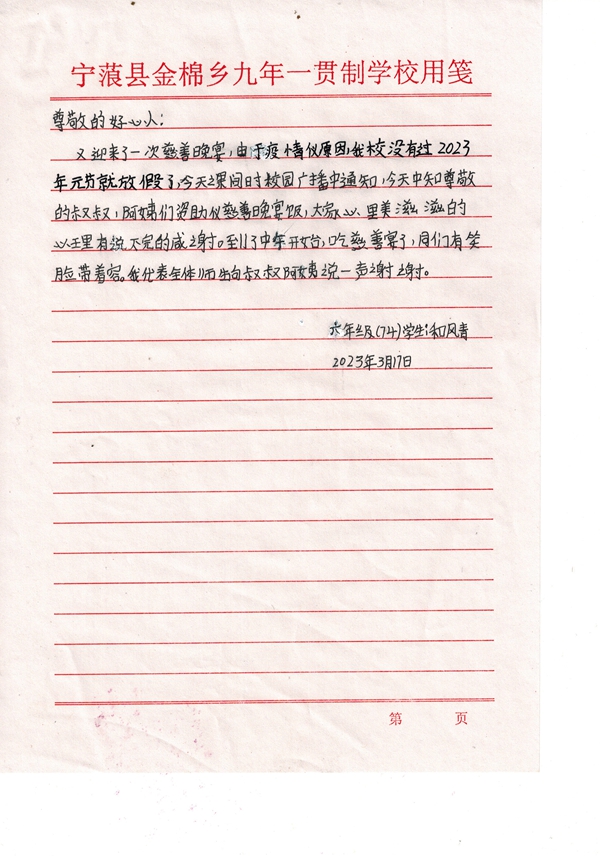 宁蒗县金棉乡九年一贯制学校用笺
尊敬的好心人：
又迎来了一次慈善晚宴，由于疫情仪原因，我校没有过2023
年元方就放假了，今天课间时校园广播中通知，今天中知尊敬
的叔叔，阿姨们资助仪慈善晚宴饭，大家心里美滋滋的
心里有说不完的感谢。至11了中午开始，吃慈善宴了，同们有笑
脸带着容。我代表全体师生向叔叔阿姨说一声谢谢。
年级(74)学生：和风青
2023年3月17日
第 页